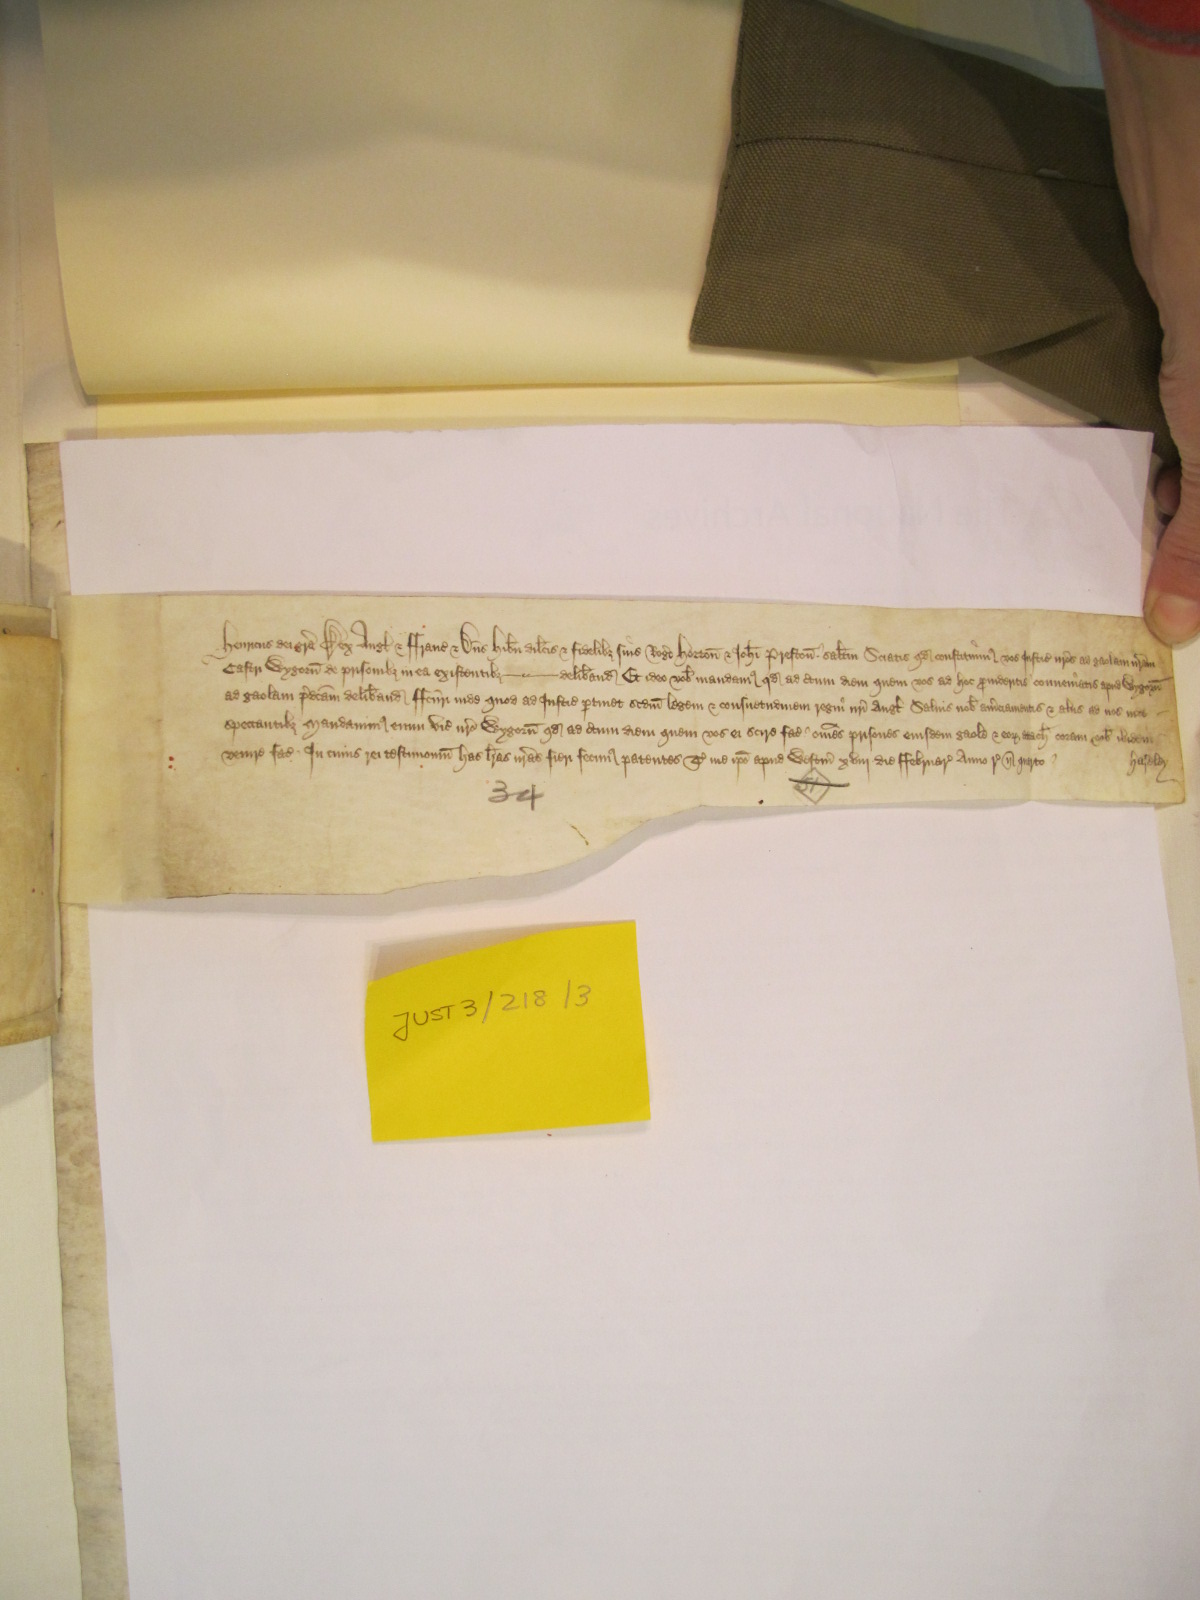 Henricus dei gra Rex Angl & ffranc & Dns hibn dilcis & fidelibz suis Rogo Horton & Johi Preston saltm Sciatis qd constituim9 vos Justic nros ad gaolam nram
Castri Wygorn de prisonibz in ea existentibz deliband Et ideo vob mandam9 qd ad certum diem quem vos ad hoc provideritis conveniatis apud Wygorn
ad gaolam pdcam deliband ffcuri inde quod ad Justic ptinet scdm legem & consuetudinem regni nri Angl Salvis nob amerciamentis & aliis ad nos inde
spectantibz Mandavim9 enim vic nro Wygorn qd ad ctum diem quem vos ei scire fac omes prisones eiusdem gaole & eoz attach coram vob ibidem
venire fac In cuius rei testimonium has lras nras fieri fecim9 patentes T me ipo apud Westm xviij die ffebruar Anno r n quarto
34
51
JUST 3/218/3